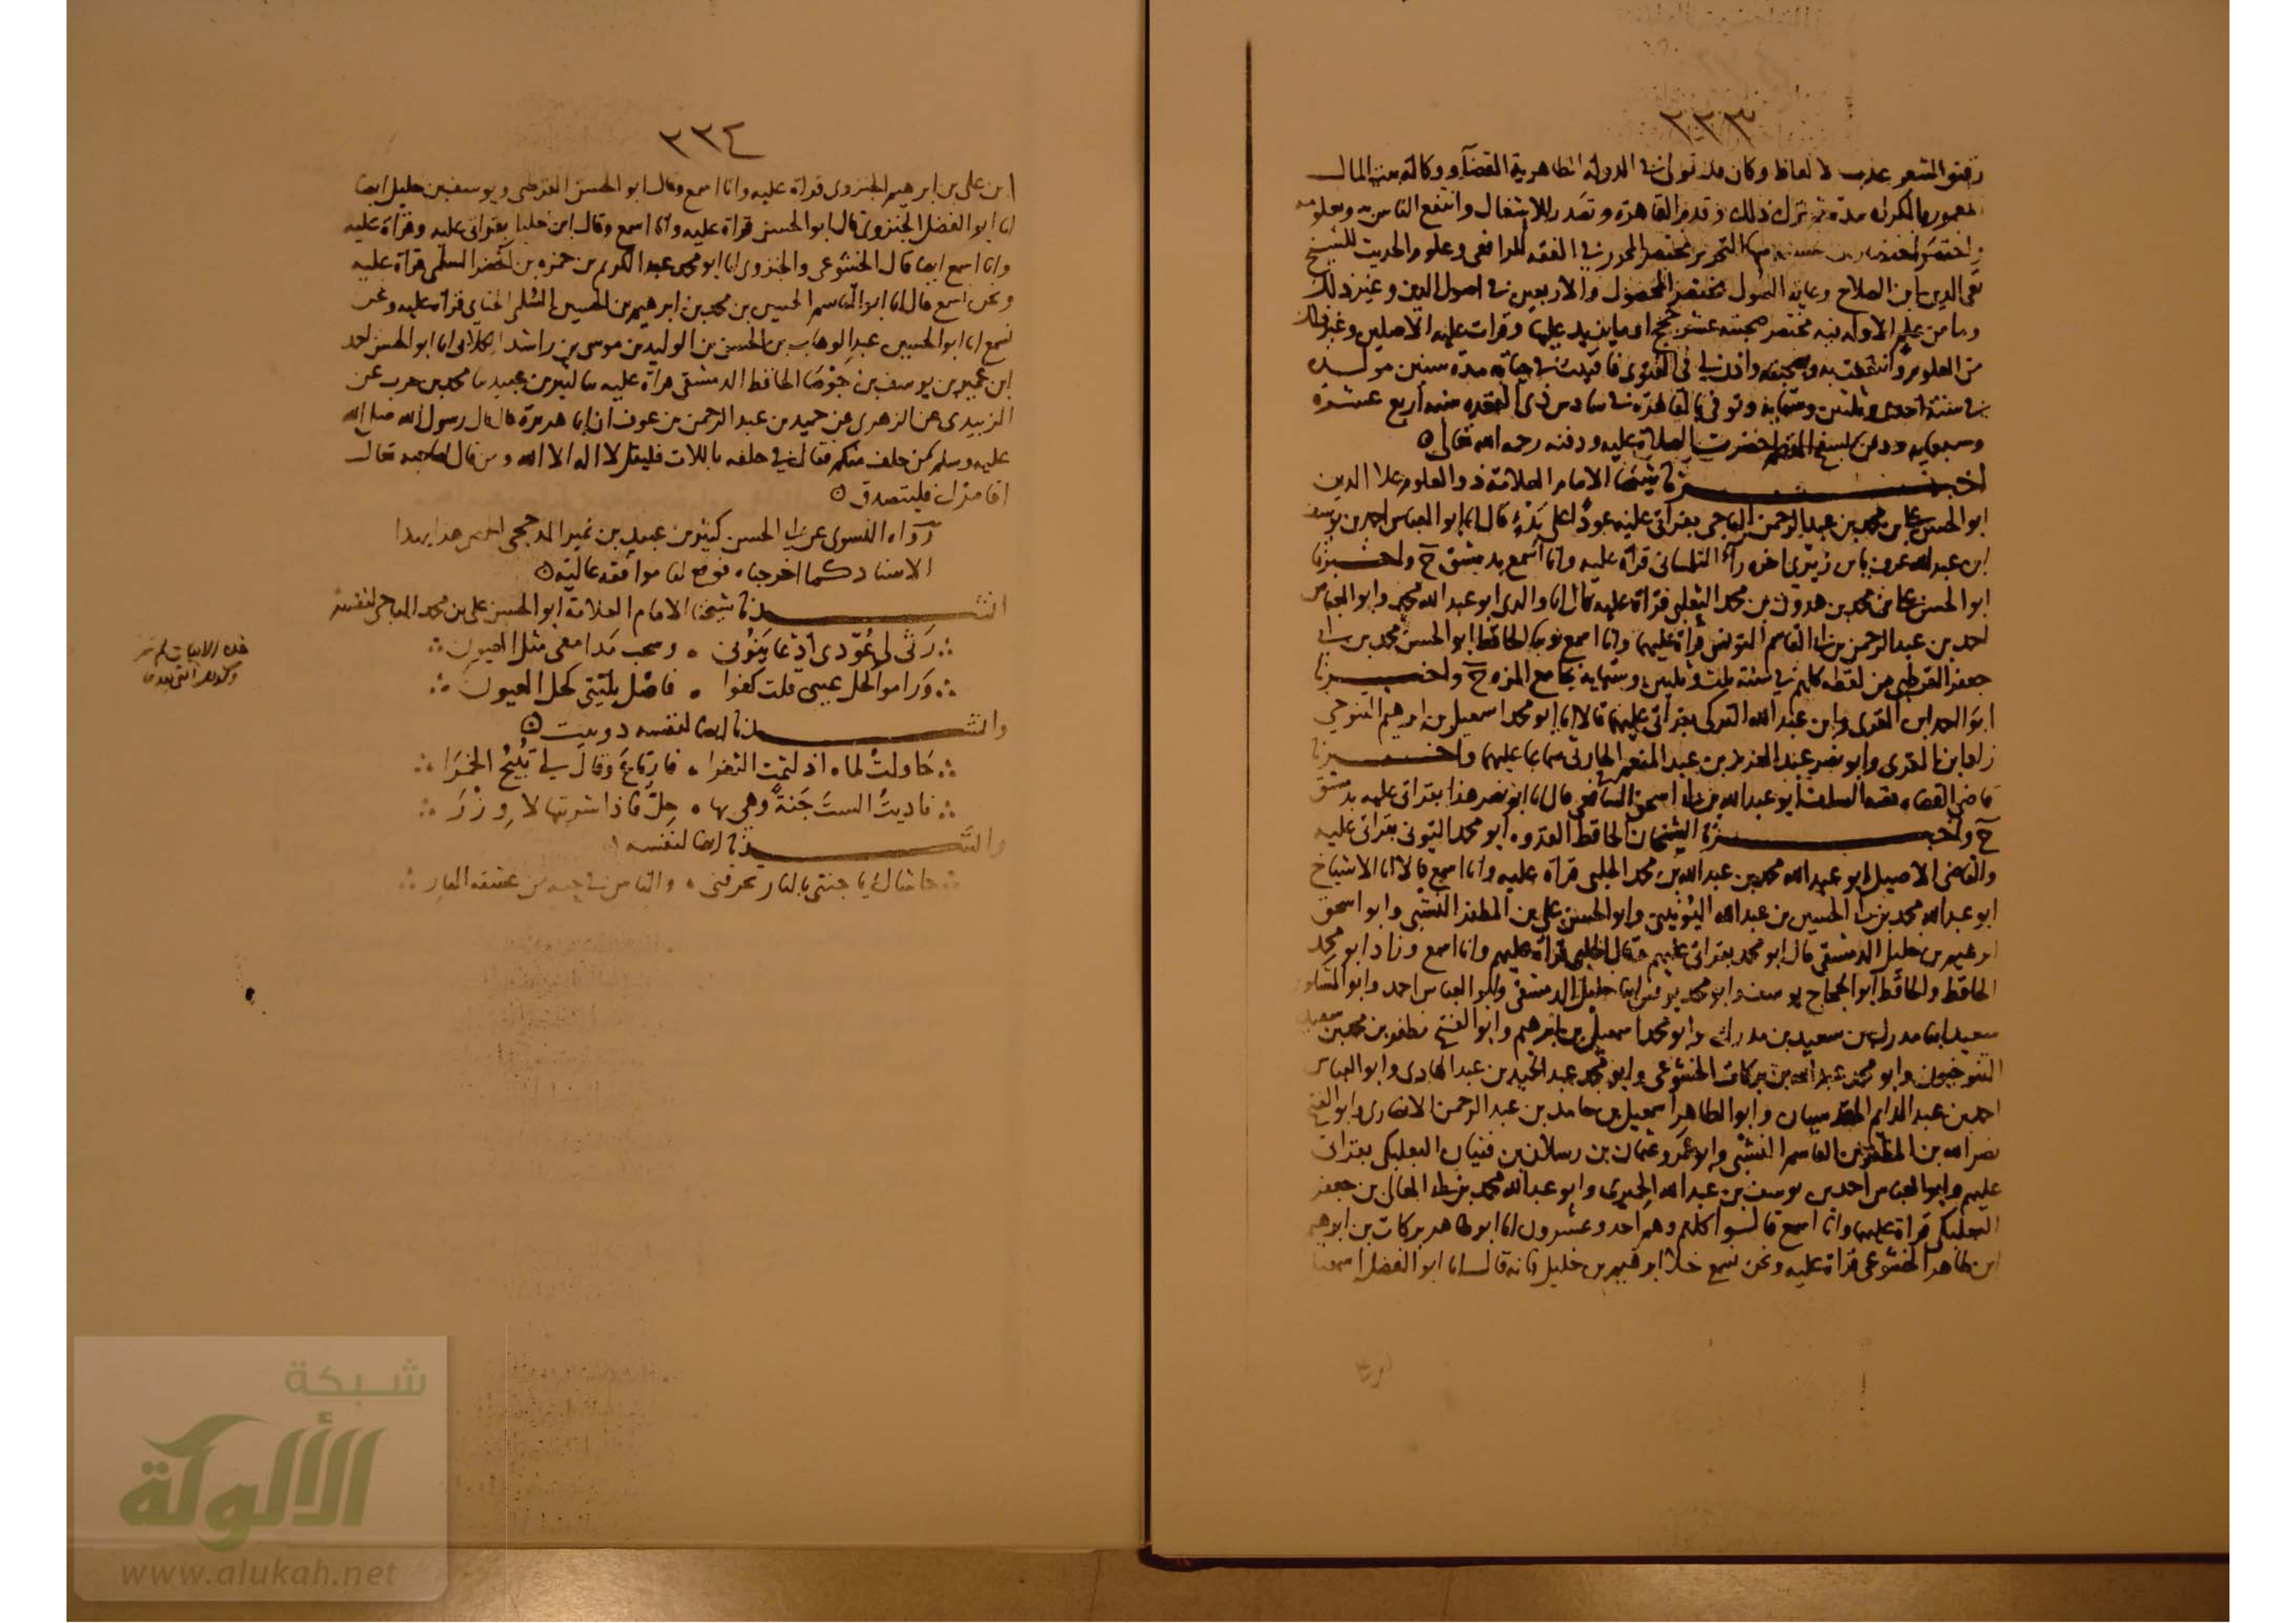 ٣٣٣
رقيق الشعر عذب الالفاظ وكان قد تولى في الدولة الظاهرية القضآ ووكالة بيت المال
المعمور بالكرك مدة ثم ترك ذلك وقدم القاهرة وتصدر للاشتغال وانتفع الناس به وبعلومه
واختصر التحرير مختصر المحرر في الفقه للرافعي وعلوم الحديث للشيخ
تقي الدين ابن الصلاح وغاية السول مختصر المحصول والاربعين في اصول الدين وغير ذلك
وما من علم الا وله فيه مختصر صحبته وقرات عليه الاصلين وغير ذلك
من العلوم وانتفعت به وبصحبته واذن لي في الفتوى فافتيت في حياته مدة سنين مولده
في سنة احدى وثلثين وستماية وتوفي بالقاهرة في سادس ذي القعدة سنة أربع عشرة
وسبعماية ودفن بسفح المقطم حضرت الصلاة عليه ودفنه رحمه الله تعالى
اخبرنا شيخنا الامام العلامة ذو العلوم علا الدين
ابو الحسن علي بن محمد بن عبد الرحمن الباجي بقراتي عليه عودًا على بدء قال انا ابو العباس احمد بن يوسف
ابن عبد الله عرف بابن زيري اخره رآء التلمساني قرآة عليه وانا أسمع بدمشق ح واخبرنا
ابو الحسن علي بن محمد بن هرون بن محمد الثعلبي قراة عليه قال انا والدي ابو عبد الله محمد وابو العباس
احمد بن عبد الرحمن بن ابي القاسم التونسي قرآة عليهما وانا اسمع نوبنا الحافظ ابو الحسن محمد بن ابي
جعفر القرطبي من لفظه كلهم في سنة ثلث وثلثين وستماية بجامع المزة ح واخبرنا
ابو الحمد ابن القوي وابن عبد الله التركي بقراتي عليهما قالا انا ابو محمد اسمعيل بن ابرهيم التنوخي
زاد ابن القوي وابو نصر عبد العزيز بن عبد المنعم الحارثي سماعا عليهما واخبرنا
قاضي القضاه بقية السلف ابو عبد الله بن ابي اسحق الشافعي قال انا ابو نصر هذا بقراتي عليه بدمشق
ح واخبرنا الشيخان الحافظ القدوه ابو محمد التوني بقراتي عليه
والقاضي الاصيل ابو عبد الله محمد بن عبد الله بن محمد الحلبي قرآة عليه وانا اسمع قالا انا الاشياخ
ابو عبد الله محمد بن ابي الحسين بن عبد الله اليونيني وابو الحسن علي بن المظفر النشبي وابو اسحق
ابرهيم بن خليل الدمشقي قال ابو محمد بقراتي عليهم وقال الحلبي قرآة عليهم وانا اسمع وزاد ابو محمد
الحافظ والحافظ ابو الحجاج يوسف وابو محمد يونس ابنا خليل الدمشقي وابو العباس احمد وابو المشاور
سعيد ابنا مدرك بن سعيد بن مدرك وابو محمد اسمعيل بن ابرهيم وابو الفتح مظفر بن محمد بن سعيد
التنوخيون وابو محمد عبد الله بن بركات الخشوعي وابو محمد عبد الحميد بن عبد الهادي وابو العباس
احمد بن عبد الدايم المقدسيان وابو الطاهر اسمعيل بن حامد بن عبد الرحمن الانصاري وابو الفتح
نصر الله بن المظفر بن القاسم النشبي وابو عمرو عثمان بن رسلان بن فتيان البعلبكي بقراتي
عليهم وابو العباس احمد بن يوسف بن عبد الله الحميري وابو عبد الله محمد بن ابي المعالي بن جعفر
البعلبكي قرآة عليهما وانا اسمع قالوا كلهم وهم احد وعشرون انا ابو طاهر بركات بن ابرهيم
ابن طاهر الخشوعي قرآة عليه ونحن نسمع خلا ابرهيم بن خليل فانه قال انا ابو الفضل اسمعيل
٣٣٤
ابن علي بن ابرهيم الجنزوي قراة عليه وانا اسمع وقال ابو الحسن القرطبي ويوسف بن خليل ايضا
انا ابو الفضل الجنزوي قال ابو الحسن قرآة عليه وانا اسمع وقال ابن خليل بقراتي عليه وقرآة عليه
وانا اسمع ايضا قال الخشوعي والجنزوي انا ابو محمد عبد الكريم بن حمزه بن الخضر السلمي قرآة عليه
ونحن اسمع قال انا ابو القاسم الحسين بن محمد بن ابرهيم بن الحسين السلمي الحنايي قراة عليه ونحن
نسمع انا ابو الحسين عبد الوهاب بن الحسن بن الوليد بن موسى بن راشد الكلابي انا ابو الحسن احمد
ابن عمير بن يوسف بن جوصا الحافظ الدمشقي قراة عليه نا كثير بن عبيد نا محمد بن حرب عن
الزبيدي عن الزهري عن حميد بن عبد الرحمن بن عوف ان ابا هريرة قال قال رسول الله صلى الله
عليه وسلم من حلف منكم فقال في حلفه باللات فليقل لا اله الا الله ومن قال لصاحبه تعال
اقامرك فليتصدق
رواه النسوي عن ابي الحسن كثير بن عبيد بن نمير المدحجي الحمصي هذا بهذا
الاسناد كما اخرجناه فوقع لنا موافقه عاليه
انشدنا شيخنا الامام العلامة ابو الحسن علي بن محمد الباجي لنفسه
رثى لي عُوَّدي اذ عاينوني وسحب مدامعي مثل العيون
وراموا كحل عيني قلت كفوا فاصل بليتي كحل العيون
وانشدنا ايضا لنفسه دوبيت
حاولت لماه اذ لثمت الثغرا فارتاع وقال لي تُبيح الخمرا
ناديت الست جنة وهي بها حِل فاذا شربتها لا وزرَ
وانشدنا ايضا لنفسه
حاشاك يا جنتي بالنار تحرقني
هذه الابيات لم
شبكة
الألوكة
www.alukah.net